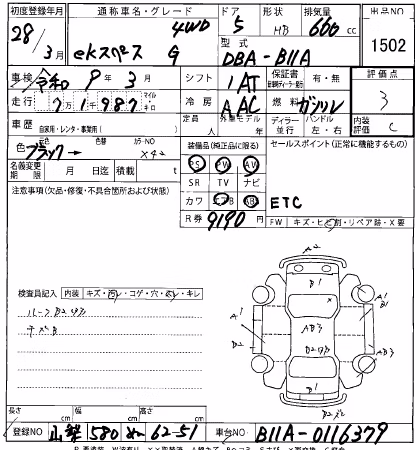 初度登録年月 通称車名・グレード ドア 形状 排気量 出品NO
28/3月 ekスペース G 4WD 5 HB 660 cc 1502
型式 DBA-B11A
車検 令和 9年 3月 シフト IAT 保証書 有・無 評価点
走行 7万1千987 マイル キロ 冷房 AAC 燃料 ガソリン 3
車歴 自家用・レンタ・事業用( ) 定員 人 外車モデル 年 ディーラー 並行 ハンドル 左・右 内装評価 C
色 元色 ブラック→ 色替 カラーNO X42 装備品(純正品に限る) セールスポイント(正常に機能するもの)
PS PW AW
名義変更期限 月 日迄 積載 t SR TV ナビ
注意事項(欠品・修復・不具合箇所および状態) カワ エアB ABS ETC
R券 9190 円 FW キズ・ヒビ割・リペア跡・X要
検査員記入 内装 キズ・汚レ・コゲ・穴・切レ・キレ
ルーフB2
キズB
A2
B1
A1 A1
B1
AB3
B2
B2
B1
B2
長さ cm 幅 cm 高さ cm
登録NO 山梨 580 ぬ 62-51 車台NO B11A-0116379